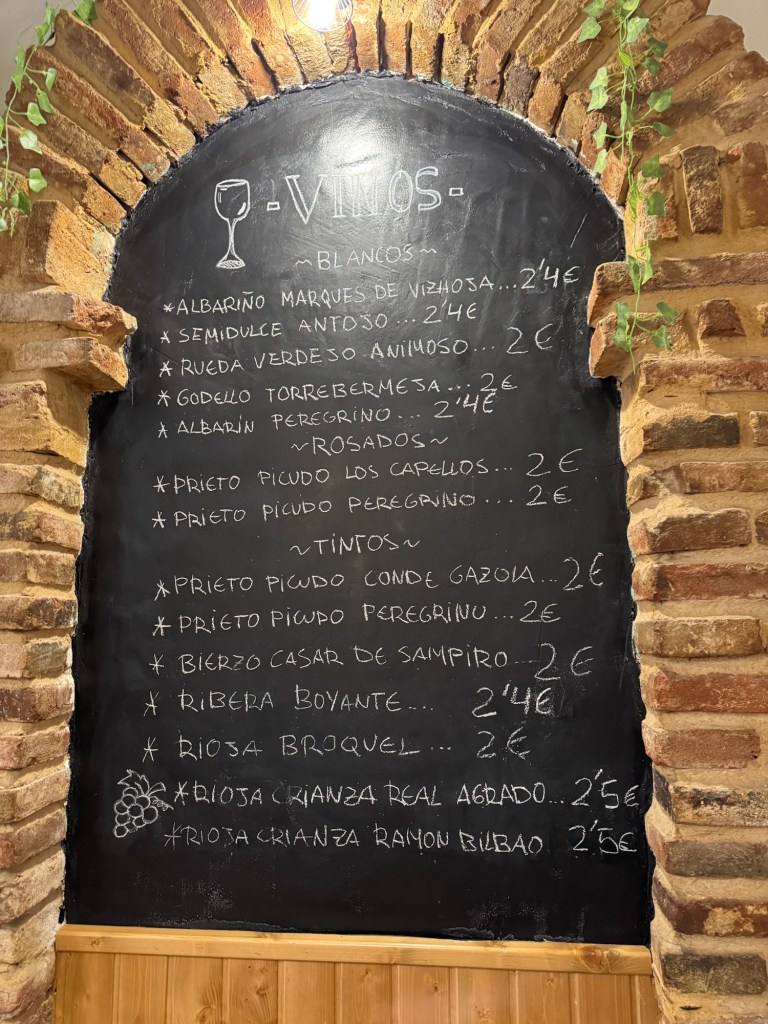 -VINOS-
~BLANCOS~
*ALBARIÑO MARQUES DE VIZHOJA...2'4€
*SEMIDULCE ANTOJO...2'4€
*RUEDA VERDEJO ANIMOSO...2€
*GODELLO TORREBERMEJA...2€
*ALBARÍN PEREGRINO...2'4€
~ROSADOS~
*PRIETO PICUDO LOS CAPELLOS...2€
*PRIETO PICUDO PEREGRINO...2€
~TINTOS~
*PRIETO PICUDO CONDE GAZOLA...2€
*PRIETO PICUDO PEREGRINO...2€
*BIERZO CASAR DE SAMPIRO...2€
*RIBERA BOYANTE...2'4€
*RIOJA BROQUEL...2€
*RIOJA CRIANZA REAL AGRADO...2'5€
*RIOJA CRIANZA RAMON BILBAO 2'5€